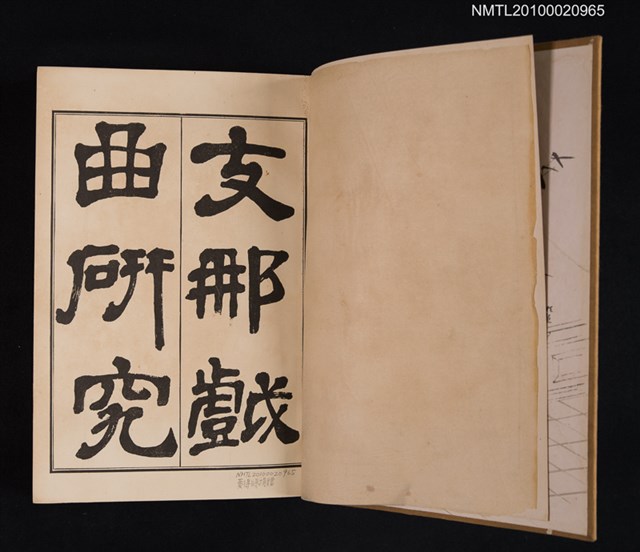 NMTL20100020965
支那戲
曲研究
NMTL20100020965